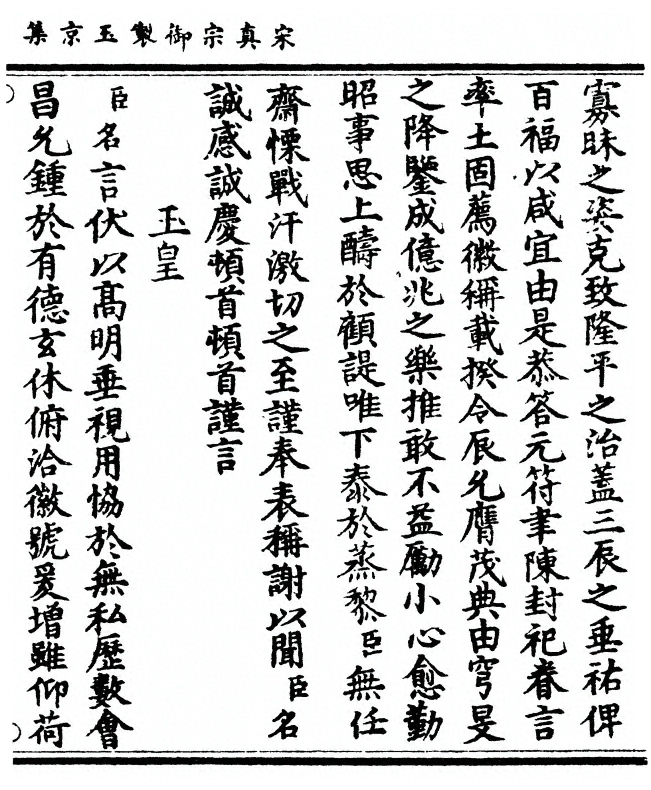 宋真宗御製玉京集
寡昧之姿克致隆平之治蓋三辰之垂祐俾
百福以咸宜由是恭答元符聿陳封祀眷言
率土固薦徽稱載揆令辰允膺茂典由穹旻
之降鑒成億兆之樂推敢不益勵小心愈勤
昭事思上疇於顧諟唯下泰於蒸黎臣無任
齋慄戰汗激切之至謹奉表稱謝以聞臣名
誠感誠慶頓首頓首謹言
玉皇
臣名言伏以高明垂視用協於無私歷數會
昌允鍾於有德玄休俯洽徽號爰增雖仰荷